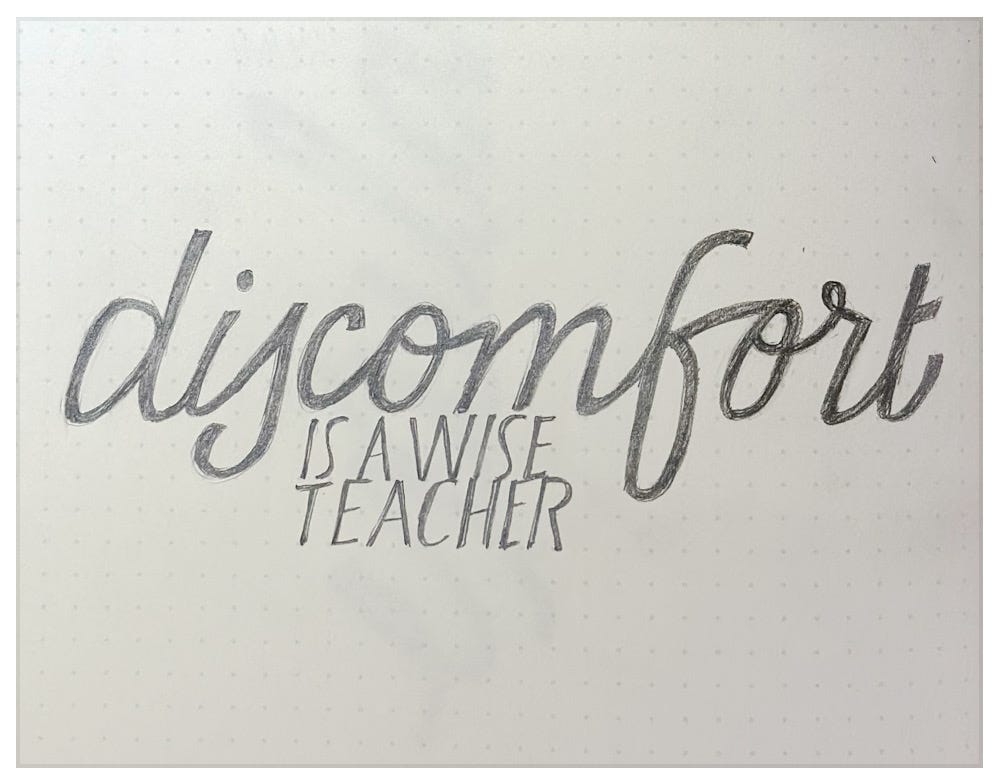 discomfort
IS A WISE
TEACHER